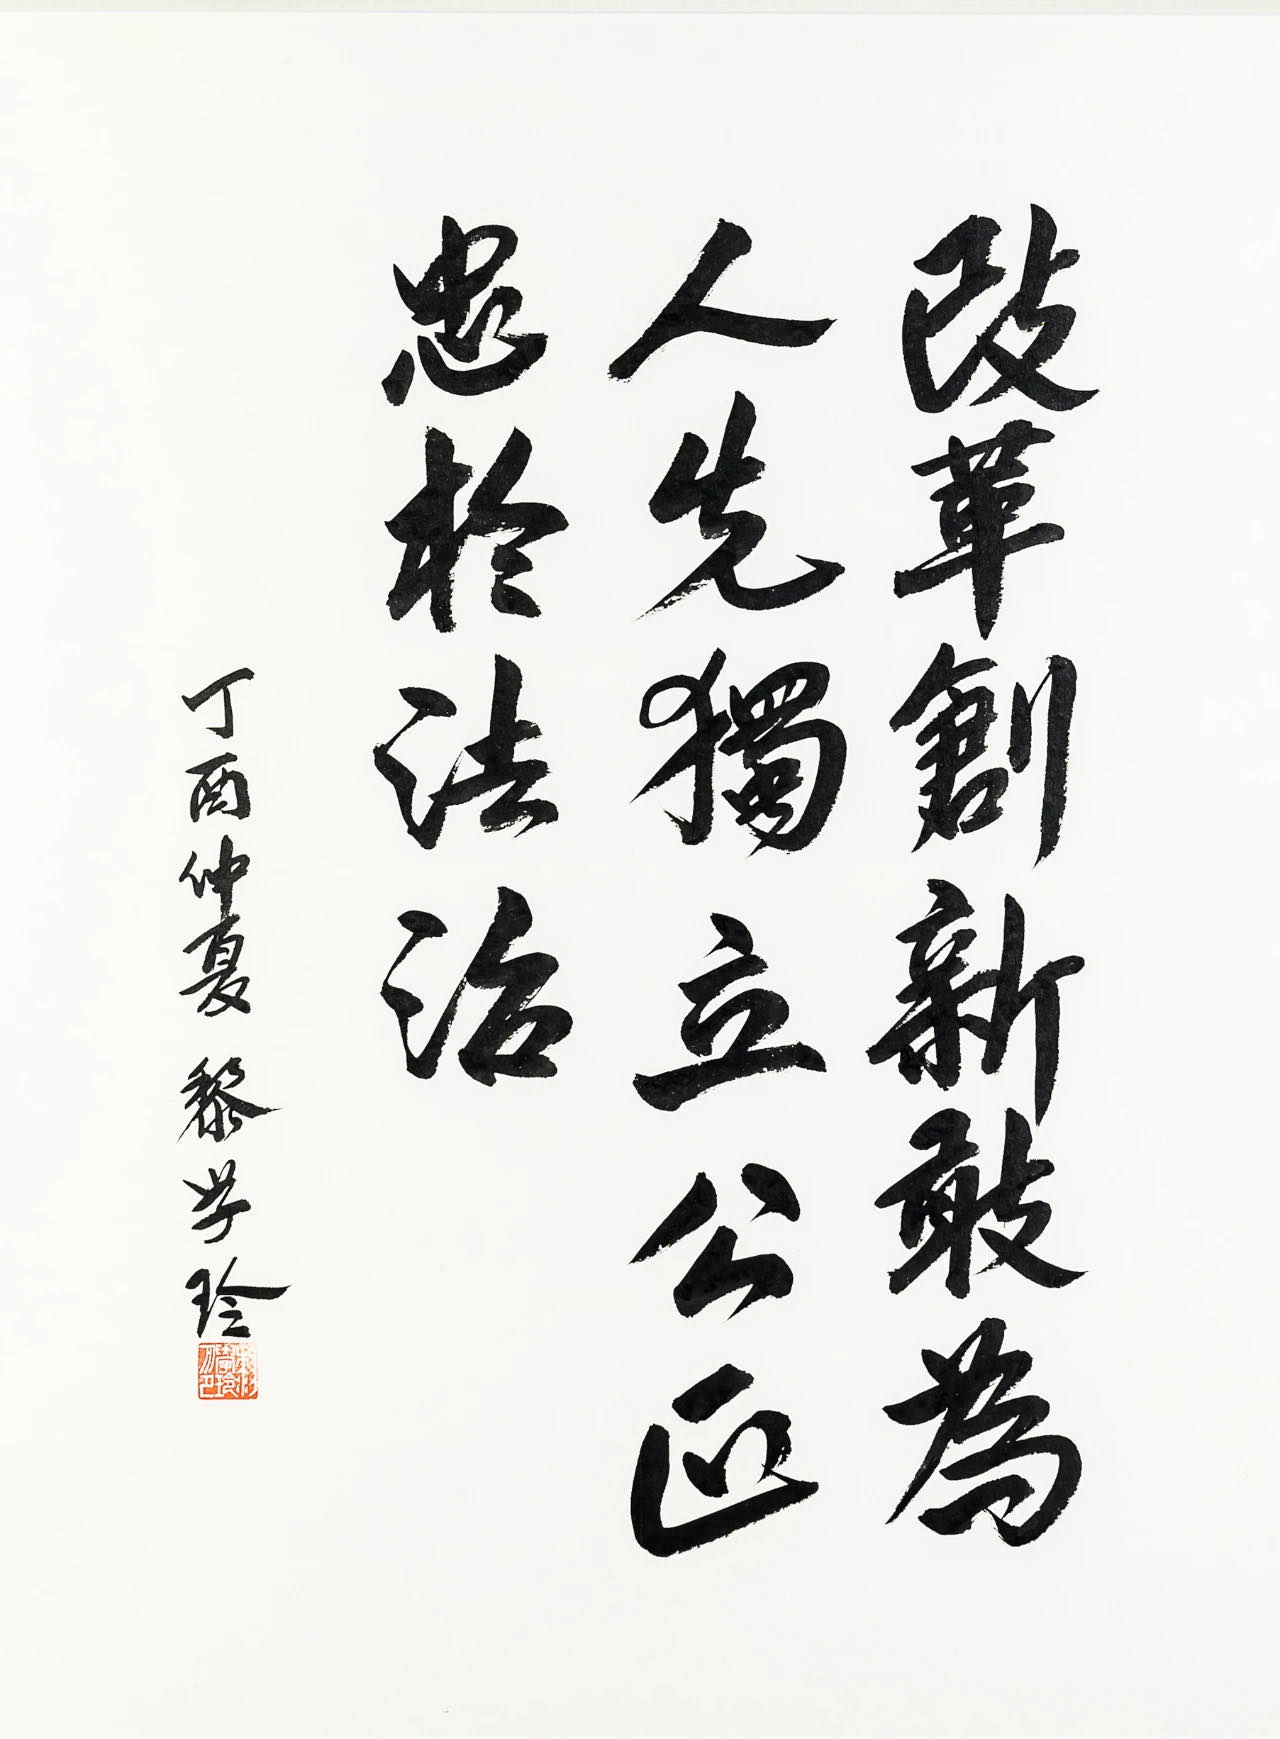 改革創新敢為
人先獨立公正
忠於法治
丁酉仲夏 黎学玲